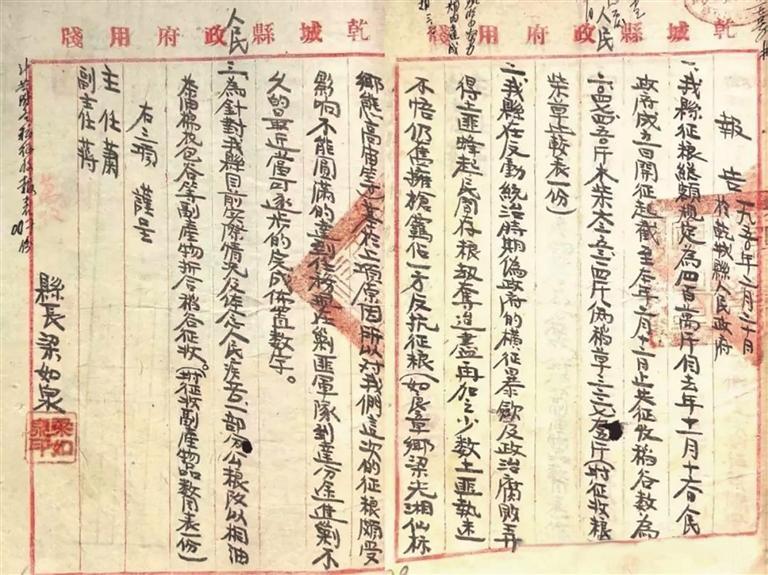 乾城縣人民政府用牋
報告 一九五〇年二月二十日
於乾城縣人民政府
一、我縣征粮總額規定為四百萬斤自去年十一月十六日人民
政府成立日開征起截至本年二月十二日止共征收稻谷数為
斤木柴 斤 稻草 斤(附征收粮
柴草比較表一份)
二、我縣在反動統治時期偽政府的橫征暴歛及政治腐敗弄
得土匪蜂起民間存粮刼奪迨盡再加之少数土匪執迷
不悟仍舊擁槍 佔一方反抗征粮(如良章鄉梁光湘仙林
乾城縣人民政府用牋
鄉熊高宙等)基於上項原因所以對我們這次的征粮頗受
影响不能圓滿的達到任務現在剿匪軍隊到達分途進剿不
久的最近當可逐步的完成佈置数字。
三、為針對我縣目前实際情况及体念人民疾苦一部份公粮改以桐油
茶油棉花包谷等副產物折合稻谷征收。(附征收副產物品数目表一份)
右三項 謹呈
主任蕭
副主任蔣
縣長梁如泉
梁如泉印